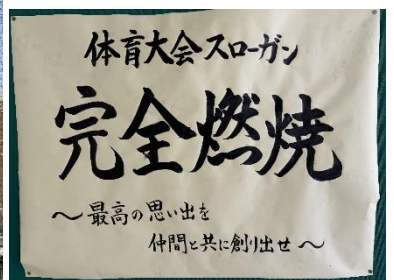 体育大会スローガン
完全燃焼
～最高の思い出を
仲間と共に創り出せ～